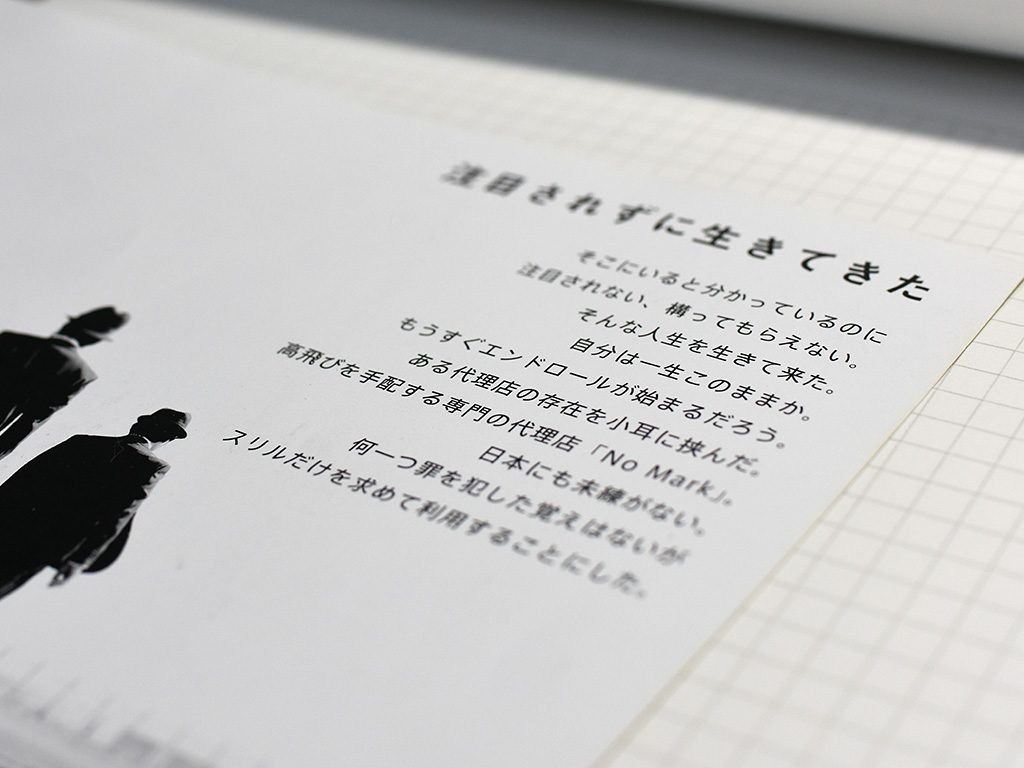 注目されずに生きてきた
そこにいると分かっているのに
注目されない、構ってもらえない。
そんな人生を生きて来た。
自分は一生このままか。
もうすぐエンドロールが始まるだろう。
ある代理店の存在を小耳に挟んだ。
高飛びを手配する専門の代理店「No Mark」。
日本にも未練がない。
何一つ罪を犯した覚えはないが
スリルだけを求めて利用することにした。